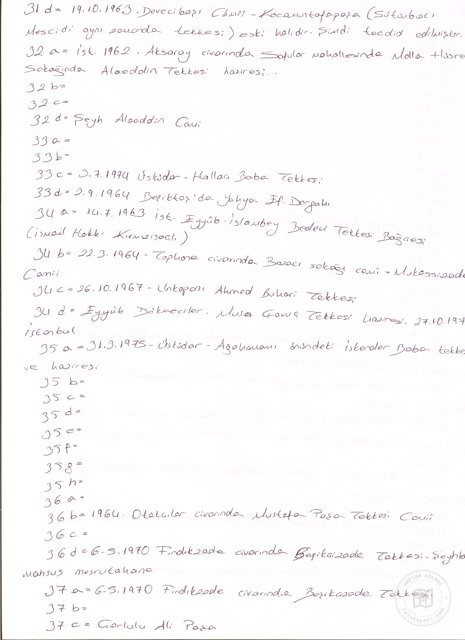 31 d = 19.10.1963 - Devecibaşı Camii - Kocamustafapaşa (Sütunbacı
Mescidi aynı zamanda tekkesi) eski halidir. Şimdi tecdid edilmiştir.
32 a = ist 1962 - Aksaray civarında Sofular mahallesinde Molla Hüsrev
Sokağında Alaeddin Tekkesi haziresi..
32 b =
32 c =
32 d = Şeyh Alaaddin Cami
33 a =
33 b =
33 c = 3.7.1974 Üsküdar - Hallac Baba Tekkesi
33 d = 2.9.1964 Beşiktaş'da Yahya Ef. Dergahı
34 a = 14.7.1963 ist. Eyyüb - islambey Bedevi Tekkesi Bahçesi
(ismail Hakkı)
34 b = 22.3.1964 - Tophane civarında sokağı cami -
Camii
34 c = 26.10.1967 - Unkapanı Ahmed Buhari Tekkesi
34 d = Eyyüb Dökmeciler. Tekkesi haziresi. 27.10.197
istanbul
35 a = 31.3.1975 - Üsküdar - Ağahamamı önündeki iskender Baba tekke
ve haziresi
35 b =
35 c =
35 d =
35 e =
35 f =
35 g =
35 h =
36 a =
36 b = 1964. Otakcılar civarında Mustafa Paşa Tekkesi Camii
36 c =
36 d = 6.5.1970 Fındıkzade civarında Beşikcizade Tekkesi - Şeyhle
mahsus meşrutahane
37 a = 6.5.1970 Fındıkzade civarında Beşikcizade Tekkesi
37 b =
37 c = Çorlulu Ali Paşa